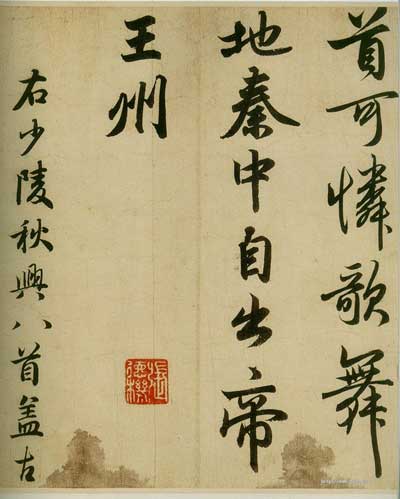 首可憐歌舞
地秦中自出帝
王州
右少陵秋興八首盖古
張德機